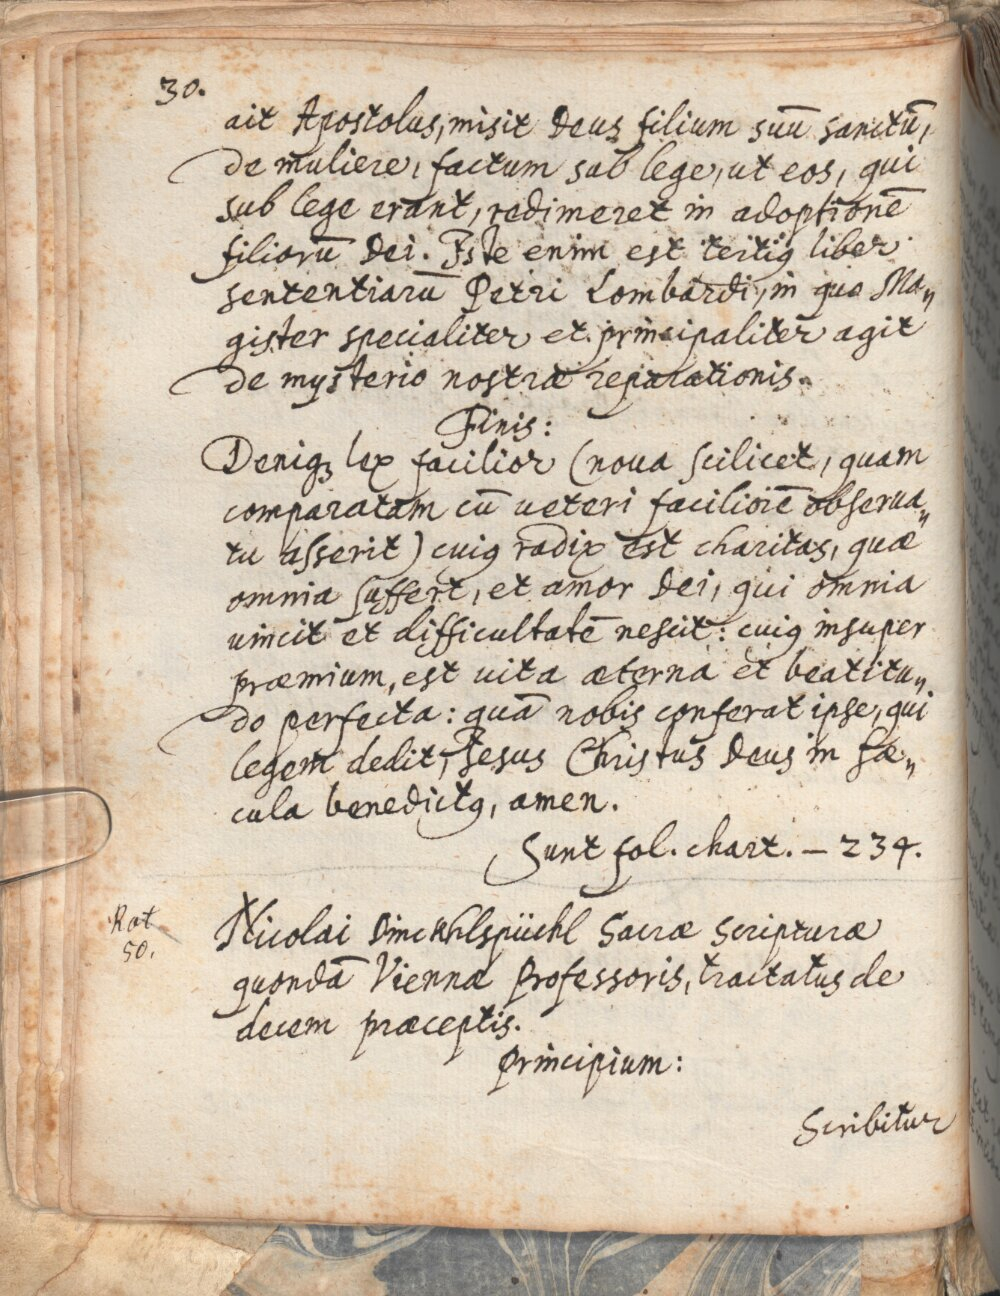 30.
ait Apostolus, misit Deus filium suū sanctū,
de muliere, factum sub lege, ut eos, qui
sub lege erant, redimeret in adoptionē
filiorū Dei. Iste enim est tertiꝰ liber
sententiarū Petri Lombardi, in quo Ma„
gister specialiter et principaliter agit
de mysterio nostræ reparationis.
Finis:
Deniqꝫ lex facilior (noua scilicet, quam
comparatam cū ueteri faciliorē obserua„
tu asserit) cuiꝰ radix est charitas, quæ
omnia suffert, et amor Dei, qui omnia
uincit et difficultatē nescit: cuiꝰ insuper
præmium, est uita æterna et beatitu„
do perfecta: quā nobis conferat ipse, qui
legem dedit, Jesus Christus Deus in sæ„
cula benedictꝰ, amen.
Sunt fol. chart. – 234.
Rot
50.
Nicolai Dinckhlspüchl Sacræ Scripturæ
quondā Viennæ Professoris, tractatus de
decem præceptis.
Principium:
Scribitur